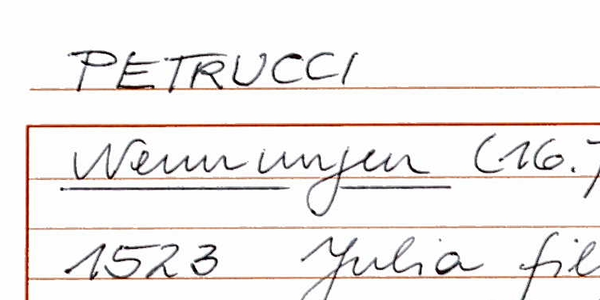 PETRUCCI
Nennungen (16.)
1523 Julia fil